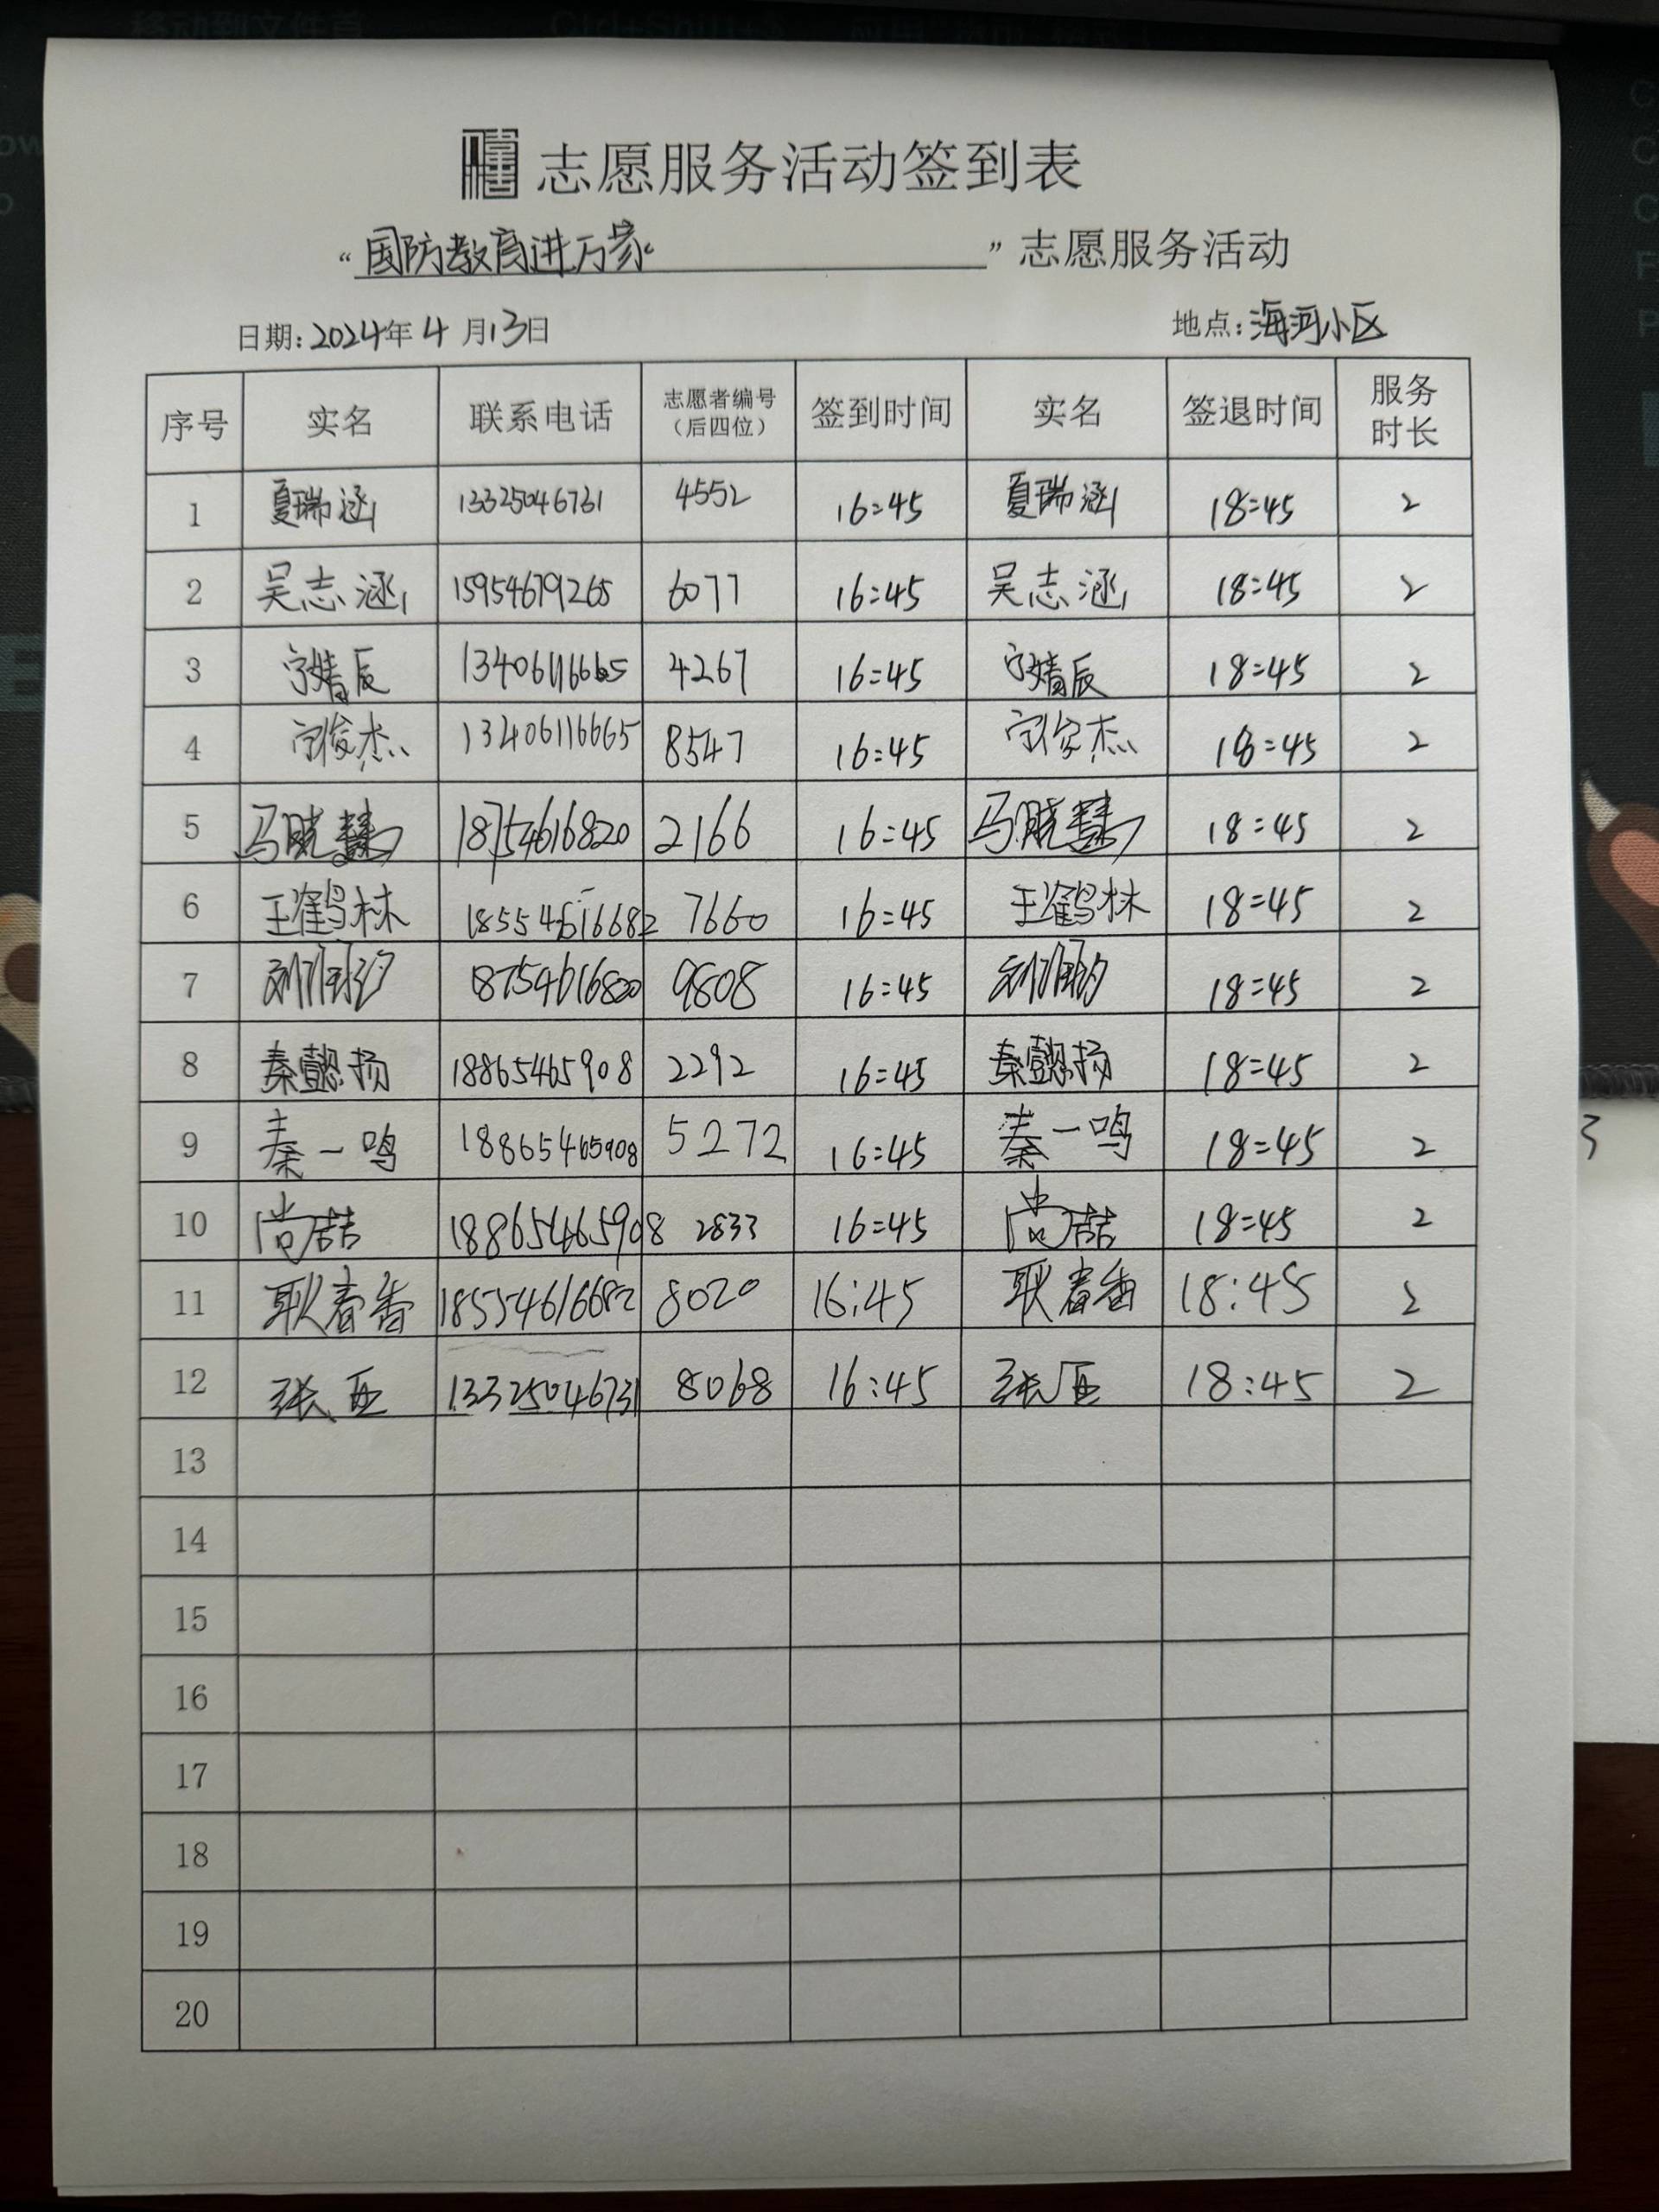 志愿服务活动签到表
“国防教育进万家” 志愿服务活动
日期:2024年4月13日 地点:海河小区
序号 实名 联系电话 志愿者编号(后四位) 签到时间 实名 签退时间 服务时长
1 夏瑞涵 13325046731 4552 16:45 夏瑞涵 18:45 2
2 吴志涵 15954679265 6077 16:45 吴志涵 18:45 2
3 宁婧辰 13406116665 4267 16:45 宁婧辰 18:45 2
4 宁俊杰 13406116665 8547 16:45 宁俊杰 18:45 2
5 马晓慧 18754616820 2166 16:45 马晓慧 18:45 2
6 王鹤林 18554616682 7660 16:45 王鹤林 18:45 2
7 18754616820 9808 16:45 18:45 2
8 秦懿扬 18865465908 2292 16:45 秦懿扬 18:45 2
9 秦一鸣 18865465908 5272 16:45 秦一鸣 18:45 2
10 尚喆 18865465908 2833 16:45 尚喆 18:45 2
11 耿春香 18554616682 8020 16:45 耿春香 18:45 2
12 张 13325046731 8068 16:45 张 18:45 2
13
14
15
16
17
18
19
20